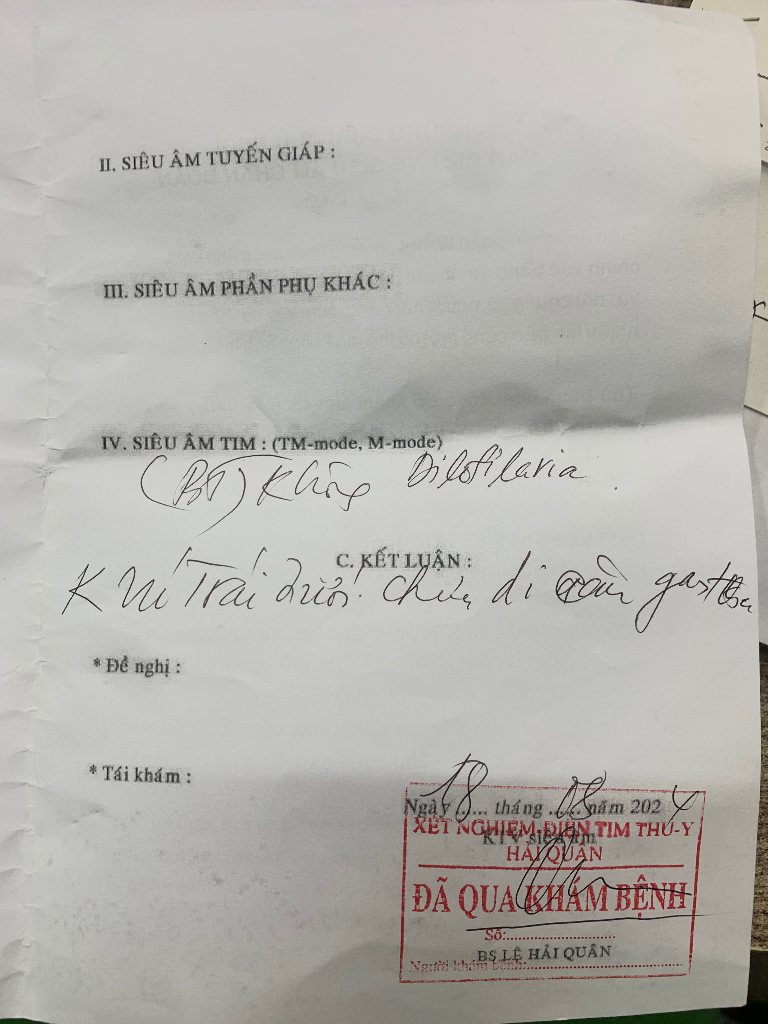 II. SIÊU ÂM TUYẾN GIÁP :
III. SIÊU ÂM PHẦN PHỤ KHÁC :
IV. SIÊU ÂM TIM : (TM-mode, M-mode)
(BT) Không Dilofilaria .
C. KẾT LUẬN :
K vú Trái dưới. chưa di căn
* Đề nghị :
* Tái khám :
Ngày 18 tháng 08 năm 2024
KTV siêu âm
XÉT NGHIỆM-ĐIỆN TIM THÚ-Y
HẢI QUÂN
ĐÃ QUA KHÁM BỆNH
Số:
BS LÊ HẢI QUÂN
Người khám bệnh: